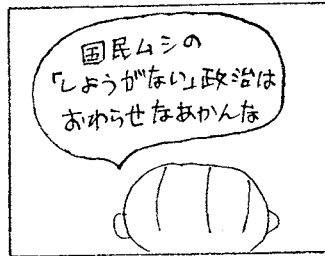 国民ムシの
「しようがない」政治は
おわらせなあかんな